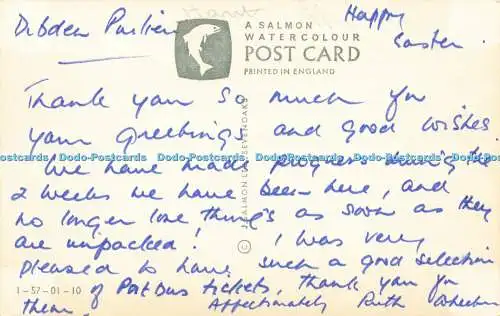 Dibden Purlieu
Happy
Easter.
A SALMON
WATERCOLOUR
POST CARD
PRINTED IN ENGLAND
Thank you so much for
your greetings and good wishes.
Dodo-Postcards Dodo-Postcards Dodo-Postcards Dodo-Postcards Dodo-Postcards
We have made progress during the
2 weeks we have been here, and
no longer lose things as soon as they
are unpacked! I was very
pleased to have such a good selection
1-57-01-10
of Post Bus tickets, thank you for
them. Affectionately Ruth
© J. SALMON LTD. SEVENOAKS